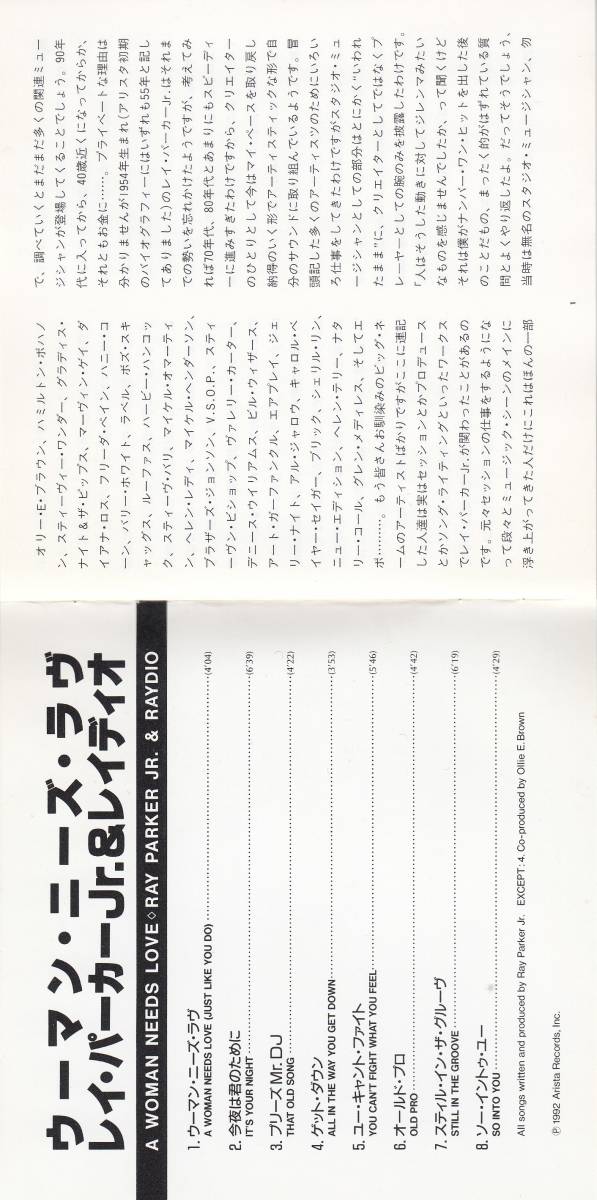 ウーマン・ニーズ・ラヴ
レイ・パーカーJr.&レイディオ
A WOMAN NEEDS LOVE◇RAY PARKER JR. & RAYDIO
1. ウーマン・ニーズ・ラヴ
A WOMAN NEEDS LOVE (JUST LIKE YOU DO) (4'04)
2. 今夜は君のために
IT'S YOUR NIGHT (6'39)
3. プリーズ Mr. DJ
THAT OLD SONG (4'22)
4. ゲット・ダウン
ALL IN THE WAY YOU GET DOWN (3'53)
5. ユー・キャント・ファイト
YOU CAN'T FIGHT WHAT YOU FEEL (5'46)
6. オールド・プロ
OLD PRO (4'42)
7. スティル・イン・ザ・グルーヴ
STILL IN THE GROOVE (6'19)
8. ソー・イントゥ・ユー
SO INTO YOU (4'29)
All songs written and produced by Ray Parker Jr. EXCEPT: 4. Co-produced by Ollie E. Brown
Ⓟ 1992 Arista Records, Inc.
オリー・E・ブラウン、ハミルトン・ボハノ
ン、スティーヴィー・ワンダー、グラディス・
ナイト&ザ・ピップス、マーヴィン・ゲイ、ダ
イアナ・ロス、フリーダ・ペイン、ハニー・コ
ーン、バリー・ホワイト、ラベル、ボズ・スキ
ャッグス、ルーファス、ハービー・ハンコッ
ク、スティーヴ・バリ、マイケル・オマーティ
ン、ヘレン・レディ、マイケル・ヘンダーソン、
ブラザーズ・ジョンソン、V.S.O.P.、スティ
ーヴン・ビショップ、ヴァレリー・カーター、
デニース・ウイリアムス、ビル・ウィザース、
アート・ガーファンクル、エアプレイ、ジェ
リー・ナイト、アル・ジャロウ、キャロル・ベ
イヤー・セイガー、ブリック、シェリル・リン、
ニュー・エディション、ヘレン・テリー、ナタ
リー・コール、グレン・メディレス、そしてエ
ボ………。もう皆さんお馴染みのビッグ・ネ
ームのアーティストばかりですがここに連記
した人達は実はセッションとかプロデュース
とかソング・ライティングといったワークス
でレイ・パーカーJr.が関わったことがあるの
です。元々セッションの仕事をするようにな
って段々とミュージック・シーンのメインに
浮き上がってきた人だけにこれはほんの一部
で、調べていくとまだまだ多くの関連ミュー
ジシャンが登場してくることでしょう。90年
代に入ってから、40歳近くになってからか、
それともお金に……。プライベートな理由は
分かりませんが1954年生まれ(アリスタ初期
のバイオグラフィーにはいずれも55年と記し
てありました)のレイ・パーカーJr.はそれま
での勢いを忘れかけたようですが、考えてみ
れば70年代、80年代とあまりにもスピーディ
ーに進みすぎたわけですから、クリエイター
のひとりとして今はマイ・ペースを取り戻し
納得のいく形でアーティスティックな形で自
分のサウンドに取り組んでいるようです。冒
頭記した多くのアーティスツのためにいろい
ろ仕事をしてきたわけですがスタジオ・ミュ
ージシャンとしての部分はとにかく“いわれ
たまま”に、クリエイターとしてではなくプ
レーヤーとしての腕のみを披露したわけです。
「人はそうした動きに対してジレンマみたい
なものを感じませんでしたか、って聞くけど
それは僕がナンバー・ワン・ヒットを出した後
のことだもの、まったく的がはずれている質
問とよくやり返したよ。だってそうでしょう、
当時は無名のスタジオ・ミュージシャン、勿